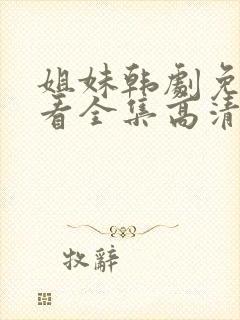 姐妹韩剧免
看全集高清
牧辭